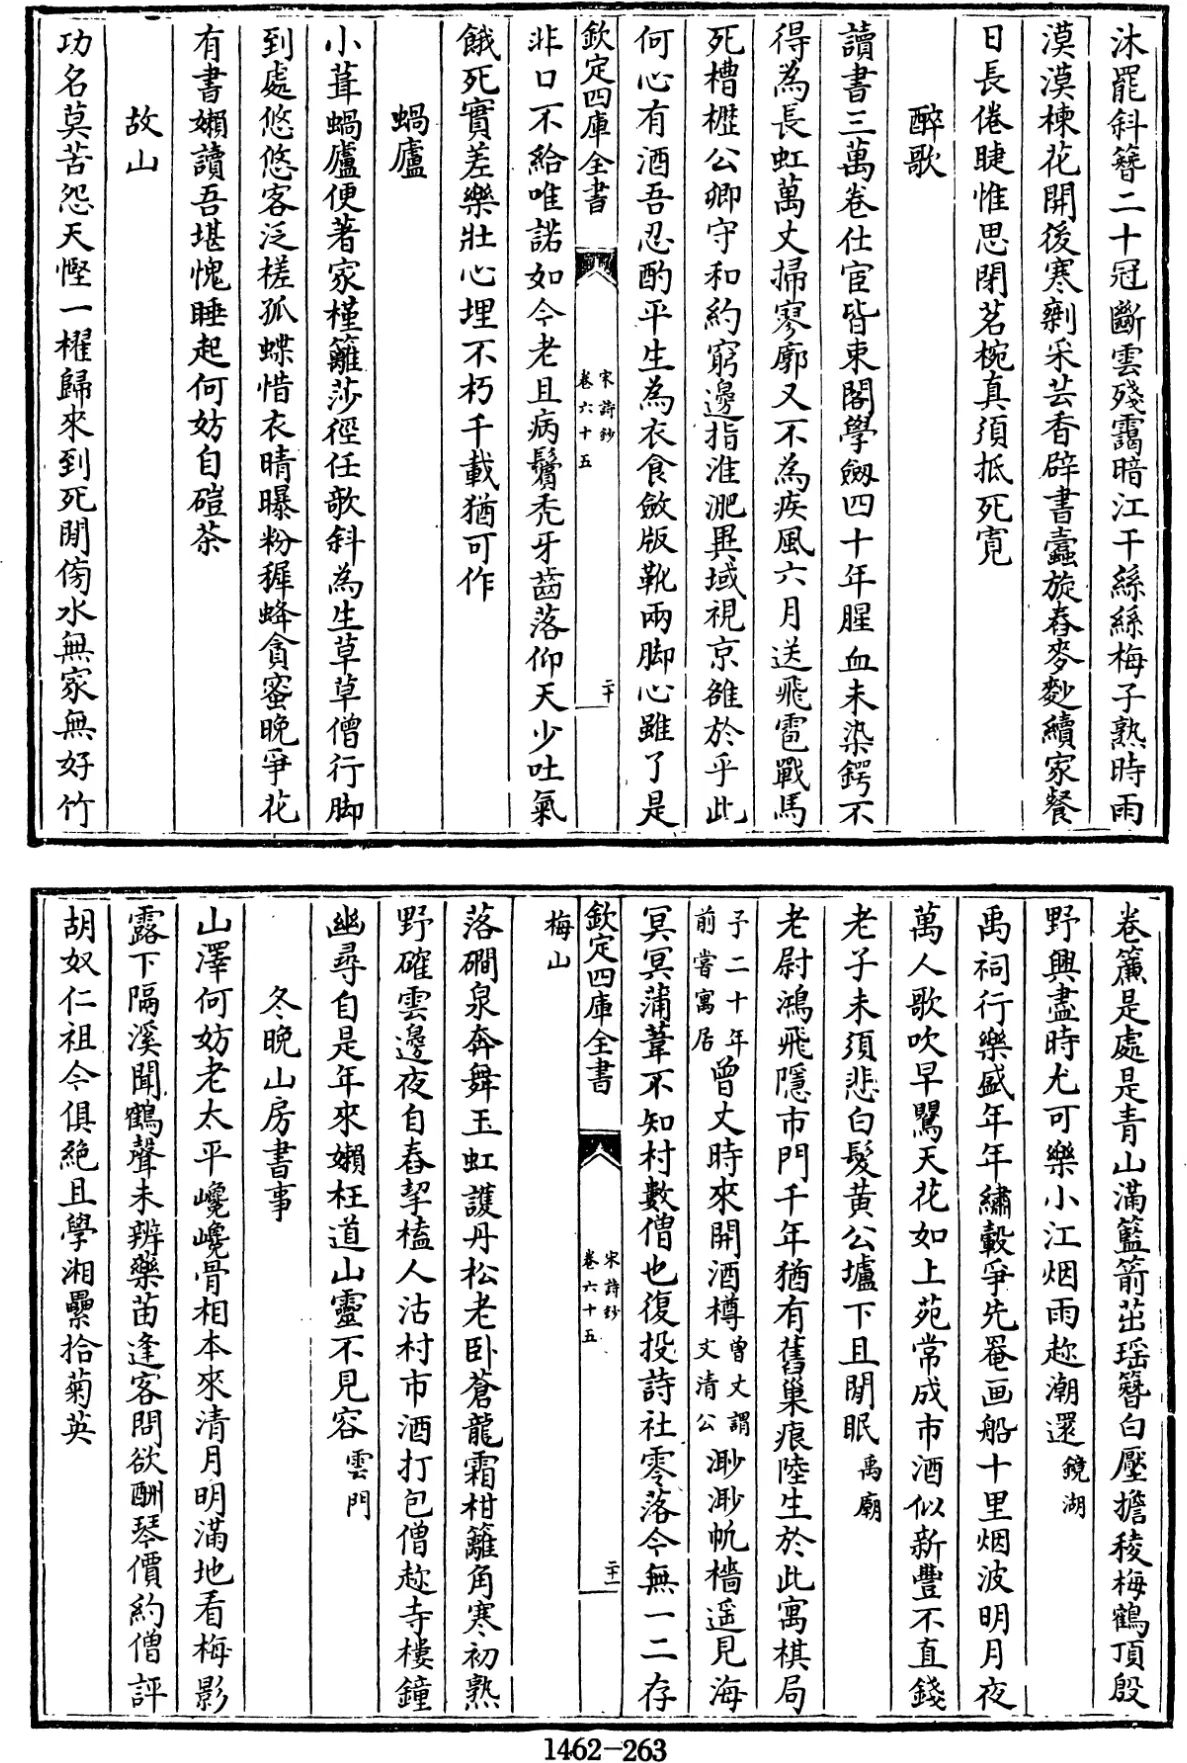 沐罷斜簪二十冠斷雲殘靄暗江干絲絲梅子熟時雨
漠漠楝花開後寒剩采芸香辟書蠧旋舂麥麨續家餐
日長倦睫惟思閉茗椀真須抵死寛
醉歌
讀書三萬卷仕宦皆東閣學劔四十年腥血未染鍔不
得為長虹萬丈掃寥廓又不為疾風六月送飛雹戰馬
死槽櫪公卿守和約窮邊指淮淝異域視京雒於乎此
何心有酒吾忍酌平生為衣食斂版靴兩脚心雖了是
欽定四庫全書
宋詩鈔
卷六十五
二十
非口不給唯諾如今老且病鬢禿牙齒落仰天少吐氣
餓死實差樂壯心埋不朽千載猶可作
蝸廬
小葺蝸廬便著家槿籬莎徑任敧斜為生草草僧行脚
到處悠悠客泛槎孤蝶惜衣晴曝粉穉蜂貪蜜晩爭花
有書嬾讀吾堪愧睡起何妨自磑茶
故山
功名莫苦怨天慳一櫂歸來到死閒傍水無家無好竹
卷簾是處是青山滿籃箭茁瑶簪白壓擔稜梅鶴頂殷
野興盡時尤可樂小江烟雨趁潮還鏡湖
禹祠行樂盛年年繡轂爭先罨画船十里烟波明月夜
萬人歌吹早鶯天花如上苑常成市酒似新豐不直錢
老子未須悲白髮黄公壚下且閒眠禹廟
老尉鴻飛隱市門千年猶有舊巢痕陸生於此寓棋局
予二十年前嘗寓居曾丈時來開酒樽曾丈謂文清公渺渺帆檣遥見海
冥冥蒲葦不知村數僧也復投詩社零落今無一二存
欽定四庫全書
宋詩鈔
卷六十五
二十一
梅山
落磵泉奔舞玉虹護丹松老卧蒼龍霜柑籬角寒初熟
野碓雲邊夜自舂挈榼人沽村市酒打包僧趁寺樓鐘
幽尋自是年來嬾枉道山靈不見容雲門
冬晩山房書事
山澤何妨老太平巉巉骨相本來清月明滿地看梅影
露下隔溪聞鶴聲未辨藥苗逢客問欲酬琴價約僧評
胡奴仁祖今俱絶且學湘纍拾菊英
1462-263